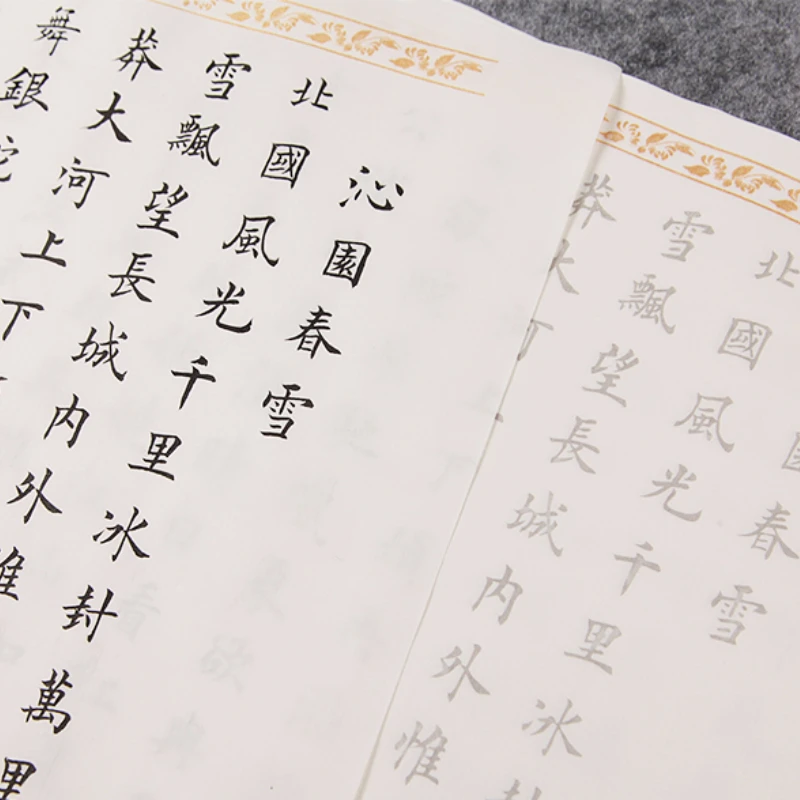 沁園春雪
北國風光千里冰封萬里
雪飄望長城內外惟
莽大河上下
舞銀蛇
春雪
北國風光千里冰
雪飄望長城內外惟
莽大